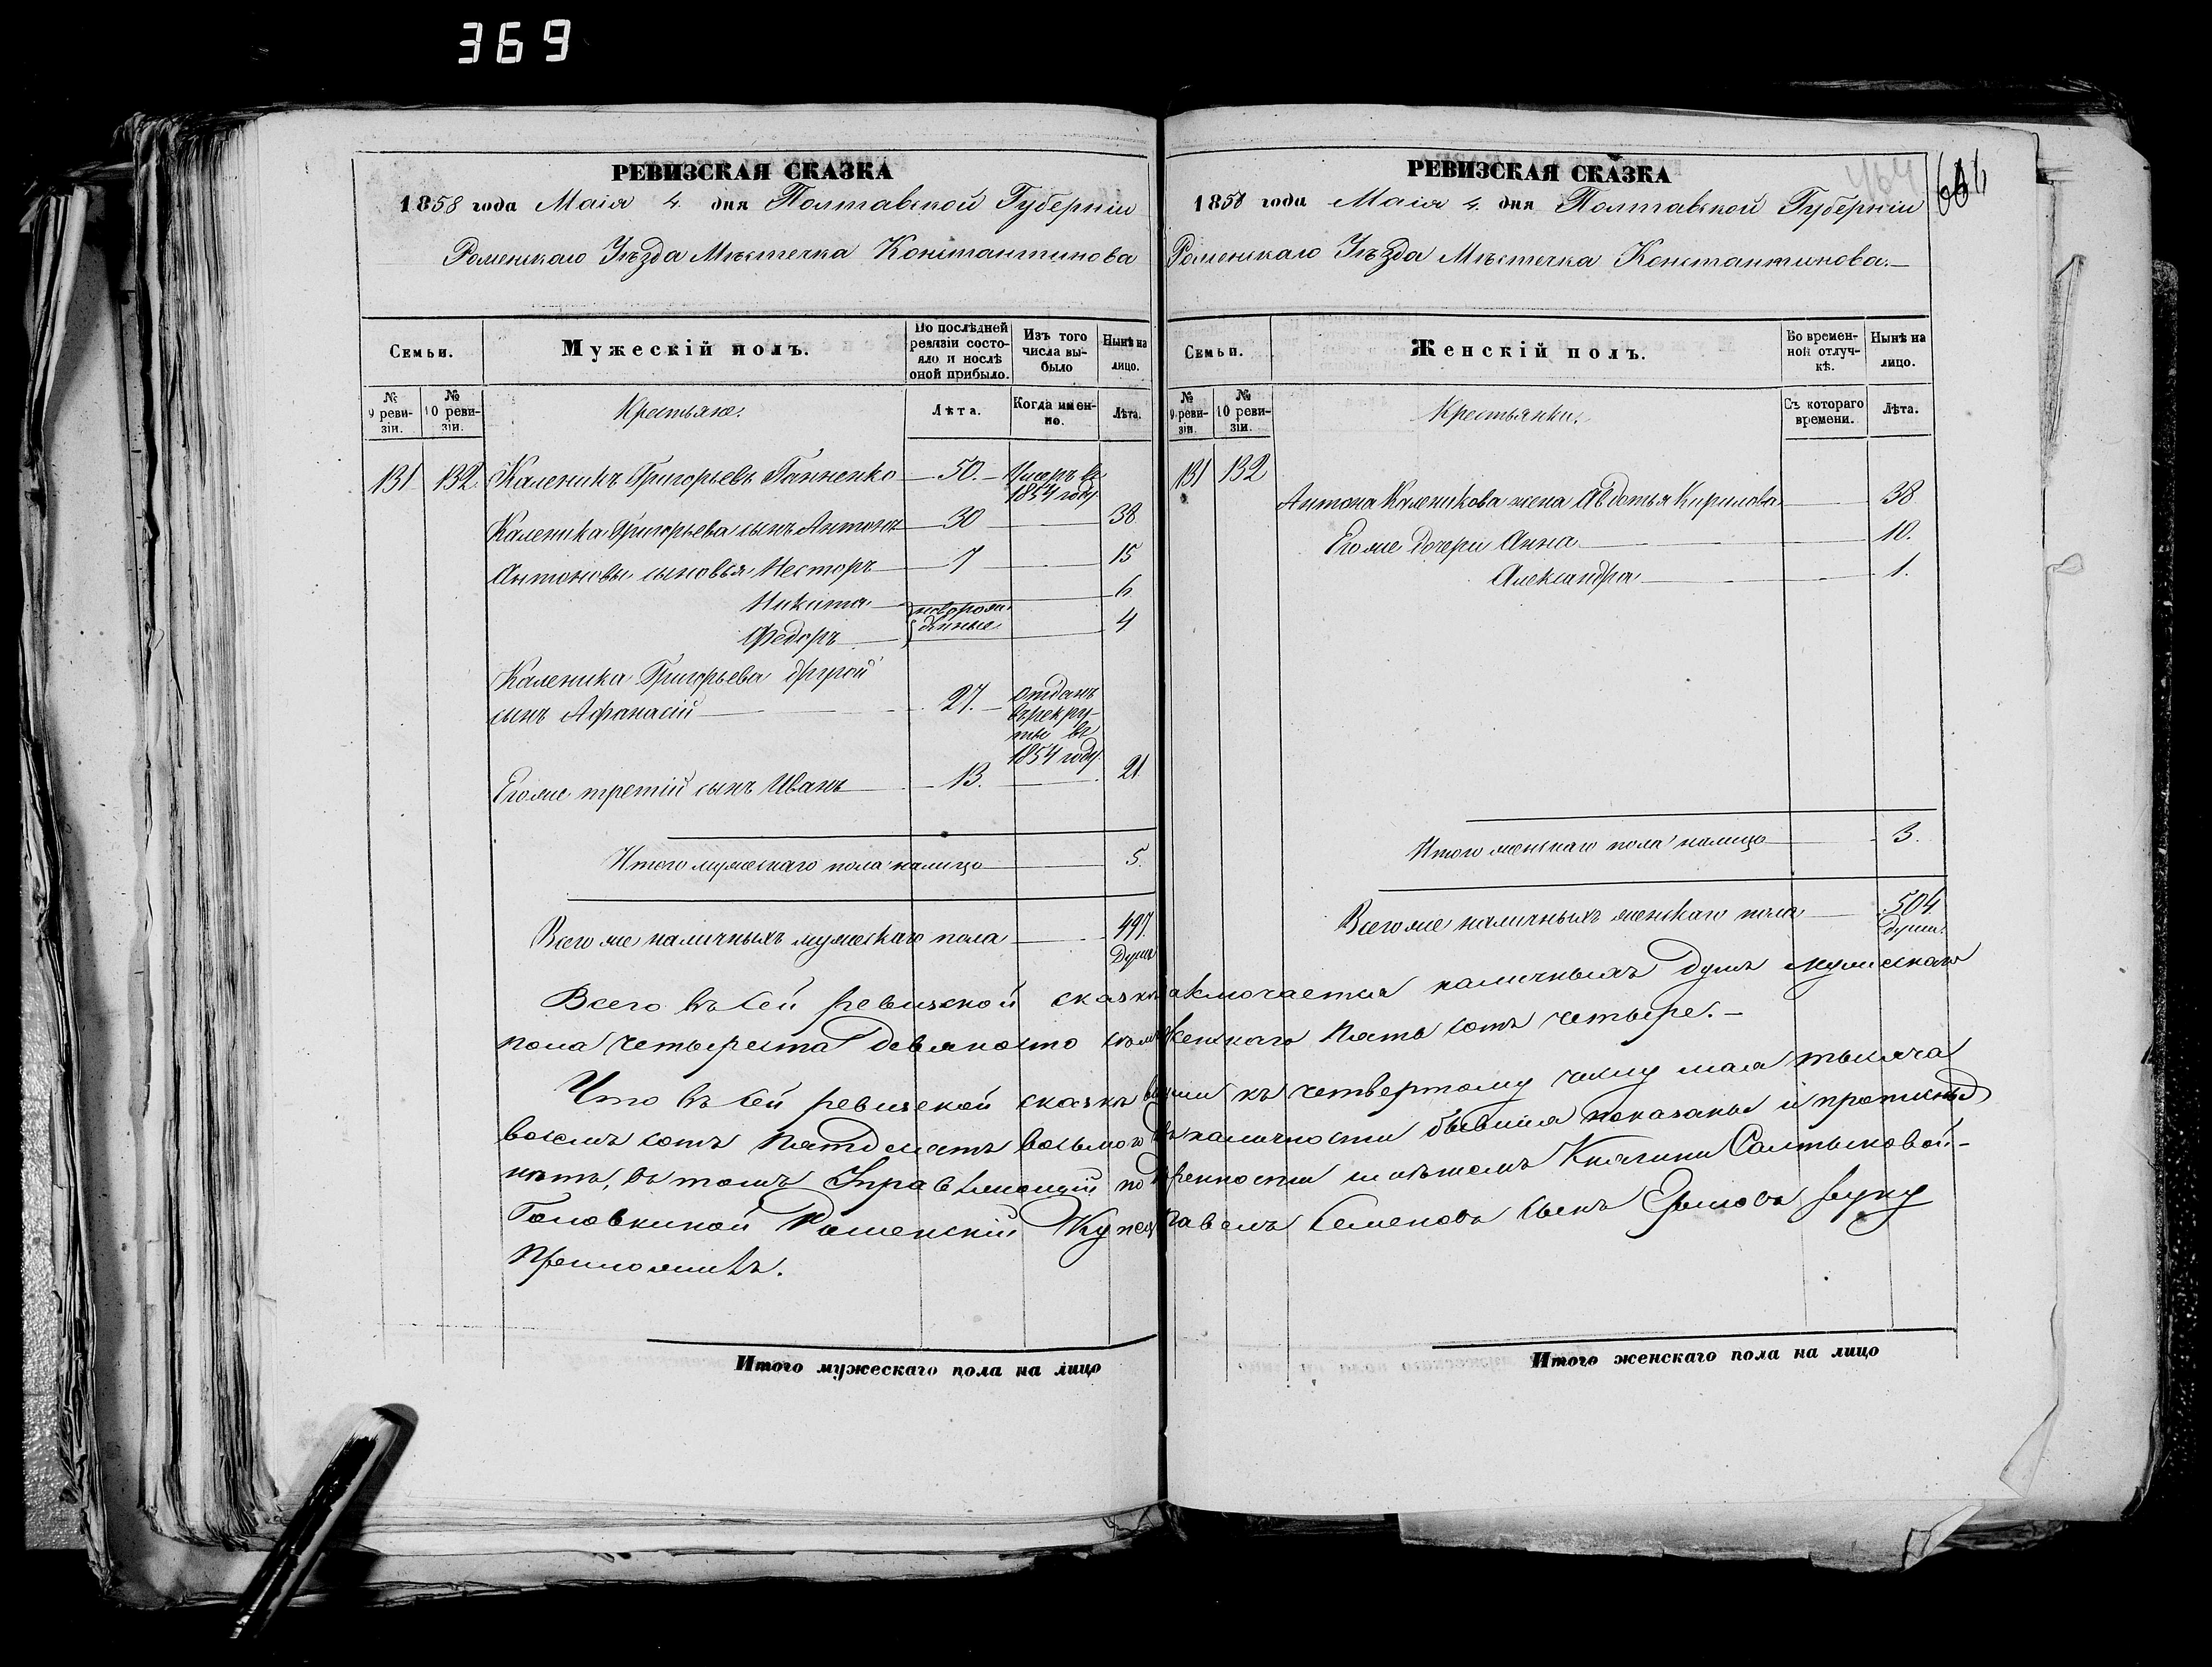 369
РЕВИЗСКАЯ СКАЗКА
1858 года Маія 4 дня Полтавской Губерніи
Роменскаго Уѣзда Мѣстечка Константинова
Семьи.
Мужескій полъ.
По послѣдней ревизіи состояло и послѣ оной прибыло.
Изъ того числа выбыло
Нынѣ на лицо.
№ 9 ревизіи.
№ 10 ревизіи.
Крестьяне.
Лѣта.
Когда именно.
Лѣта.
131 132 Каленикъ Григорьевъ Ганненко 50. Умеръ въ
1854 году
Каленика Григорьева сынъ Антонъ 30 38
Антоновы сыновья Несторъ 7 15
Никита новорож 6
Федоръ денные 4
Каленика Григорьева другой
сынъ Афанасій 27. отданъ
въ рекру-
ты въ
1854 году
Его же третій сынъ Иванъ 13. 21
Итого мужескаго пола налицо 5.
Всего же наличныхъ мужескаго пола 497.
Душъ
РЕВИЗСКАЯ СКАЗКА
464
1858 года Маія 4. дня Полтавской Губерніи
Роменскаго Уѣзда Мѣстечка Константинова.
Семьи.
Женскій полъ.
Во временной отлучкѣ.
Нынѣ на лицо.
№ 9 ревизіи.
№ 10 ревизіи.
Крестьянки.
Съ котораго времени.
Лѣта.
131 132
Антона Каленикова жена Авдотья Кирилова 38
Его же дочери Анна 10.
Александра 1.
Итого женскаго пола налицо 3.
Всего же наличныхъ женскаго пола 504.
душъ.
Всего въ сей ревизской сказкѣ заключается наличныхъ душъ мужескаго
пола четыреста девяносто семь женскаго пять сотъ четыре.
Что въ сей ревизской сказкѣ всѣ души къ четвертому числу мая тысяча
восемь сотъ пятдесятъ восьмого въ наличности бывшія показаны и прописныхъ
нѣтъ, въ томъ Управляющій по имѣніемъ Княгини Салтыковой-
Головкиной Роменскій Купец Павелъ Семеновъ сынъ Ершовъ руку
приложилъ.
Итого мужескаго пола на лицо
Итого женскаго пола на лицо